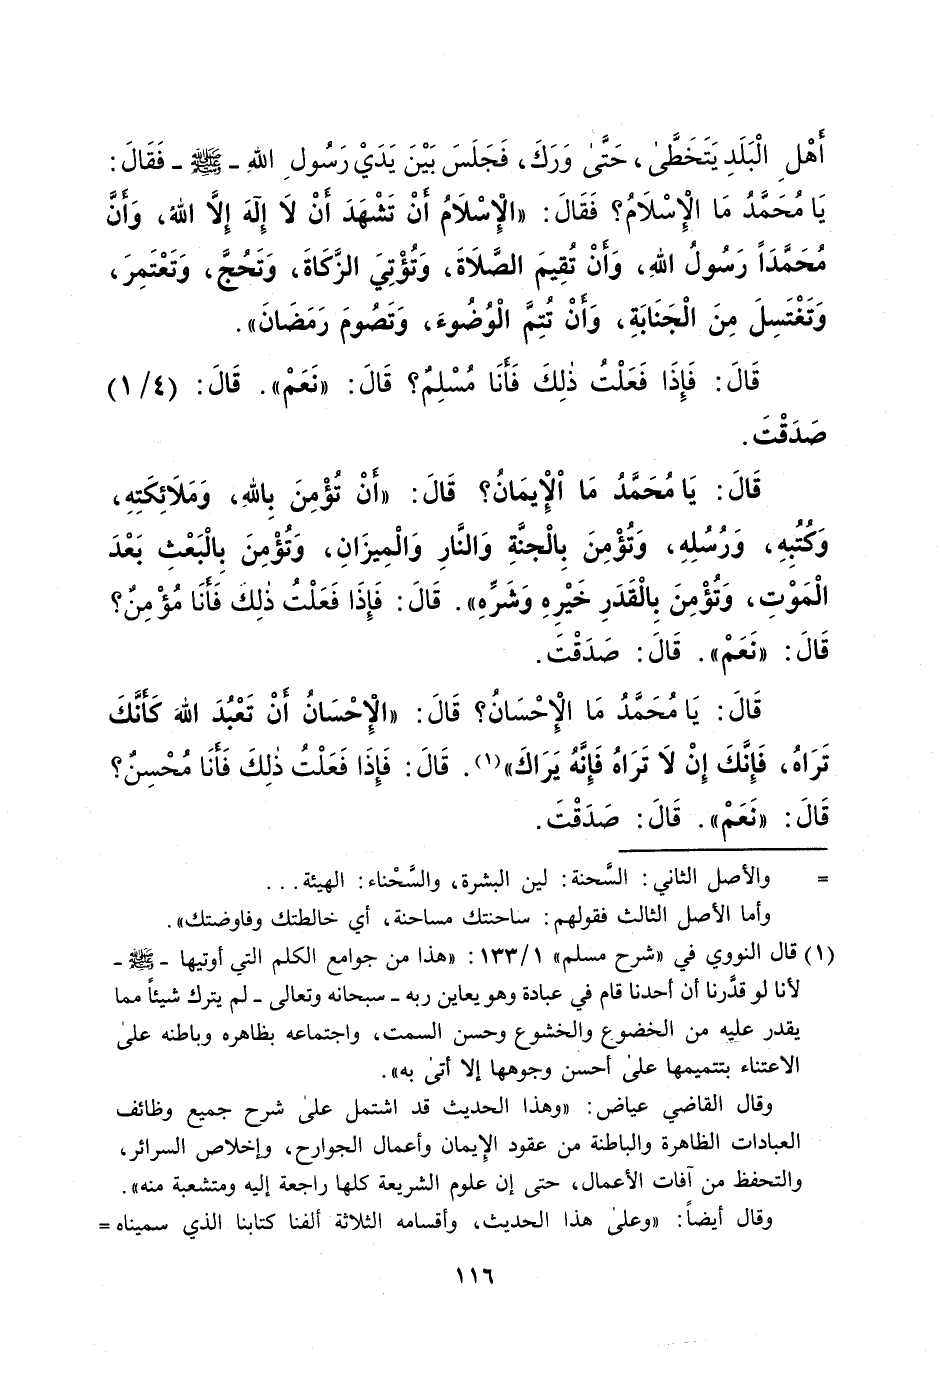 أَهْلِ الْبَلَدِ يَتَخَطَّىٰ، حَتَّىٰ وَرَكَ، فَجَلَسَ بَيْنَ يَدَيْ رَسُولِ اللهِ ـ ﷺ ـ فَقَالَ:
يَا مُحَمَّدُ مَا الْإِسْلَامُ؟ فَقَالَ: «الْإِسْلَامُ أَنْ تَشْهَدَ أَنْ لَا إِلَهَ إِلَّا اللهُ، وَأَنَّ
مُحَمَّدَاً رَسُولُ اللهِ، وَأَنْ تُقِيمَ الصَّلَاةَ، وَتُؤْتِيَ الزَّكَاةَ، وَتَحُجَّ، وَتَعْتَمِرَ،
وَتَغْتَسِلَ مِنَ الْجَنَابَةِ، وَأَنْ تُتِمَّ الْوُضُوءَ، وَتَصُومَ رَمَضَانَ».
قَالَ: فَإِذَا فَعَلْتُ ذٰلِكَ فَأَنَا مُسْلِمٌ؟ قَالَ: «نَعَمْ». قَالَ: (١/٤)
صَدَقْتَ.
قَالَ: يَا مُحَمَّدُ مَا الْإِيمَانُ؟ قَالَ: «أَنْ تُؤْمِنَ بِاللهِ، وَمَلَائِكَتِهِ،
وَكُتُبِهِ، وَرُسُلِهِ، وَتُؤْمِنَ بِالْجنَّةِ وَالنَّارِ وَالْمِيزَانِ، وَتُؤْمِنَ بِالْبَعْثِ بَعْدَ
الْمَوْتِ، وَتُؤْمِنَ بِالْقَدَرِ خَيْرِهِ وَشَرِّهِ». قَالَ: فَإِذَا فَعَلْتُ ذٰلِكَ فَأَنَا مُؤْمِنٌ؟
قَالَ: «نَعَمْ». قَالَ: صَدَقْتَ.
قَالَ: يَا مُحَمَّدُ مَا الْإِحْسَانُ؟ قَالَ: «الْإِحْسَانُ أَنْ تَعْبُدَ اللهَ كَأَنَّكَ
تَرَاهُ، فَإِنَّكَ إِنْ لَا تَرَاهُ فَإِنَّهُ يَرَاكَ»(١). قَالَ: فَإِذَا فَعَلْتُ ذٰلِكَ فَأَنَا مُحْسِنٌ؟
قَالَ: «نَعَمْ». قَالَ: صَدَقْتَ.
= والأصل الثاني: السَّحنة: لين البشرة، والسَّحْناء: الهيئة...
وأما الأصل الثالث فقولهم: ساحنتك مساحنة، أي خالطتك وفاوضتك».
(١) قال النووي في «شرح مسلم» ١/١٣٣: «هذا من جوامع الكلم التي أوتيها ـ ﷺ ـ
لأنا لو قدَّرنا أن أحدنا قام في عبادة وهو يعاين ربه ـ سبحانه وتعالى ـ لم يترك شيئاً مما
يقدر عليه من الخضوع والخشوع وحسن السمت، واجتماعه بظاهره وباطنه علىٰ
الاعتناء بتتميمها علىٰ أحسن وجوهها إلا أتىٰ به».
وقال القاضي عياض: «وهذا الحديث قد اشتمل علىٰ شرح جميع وظائف
العبادات الظاهرة والباطنة من عقود الإيمان وأعمال الجوارح، وإخلاص السرائر،
والتحفظ من آفات الأعمال، حتى إن علوم الشريعة كلها راجعة إليه ومتشعبة منه».
وقال أيضاً: «وعلىٰ هذا الحديث، وأقسامه الثلاثة ألفنا كتابنا الذي سميناه =
١١٦